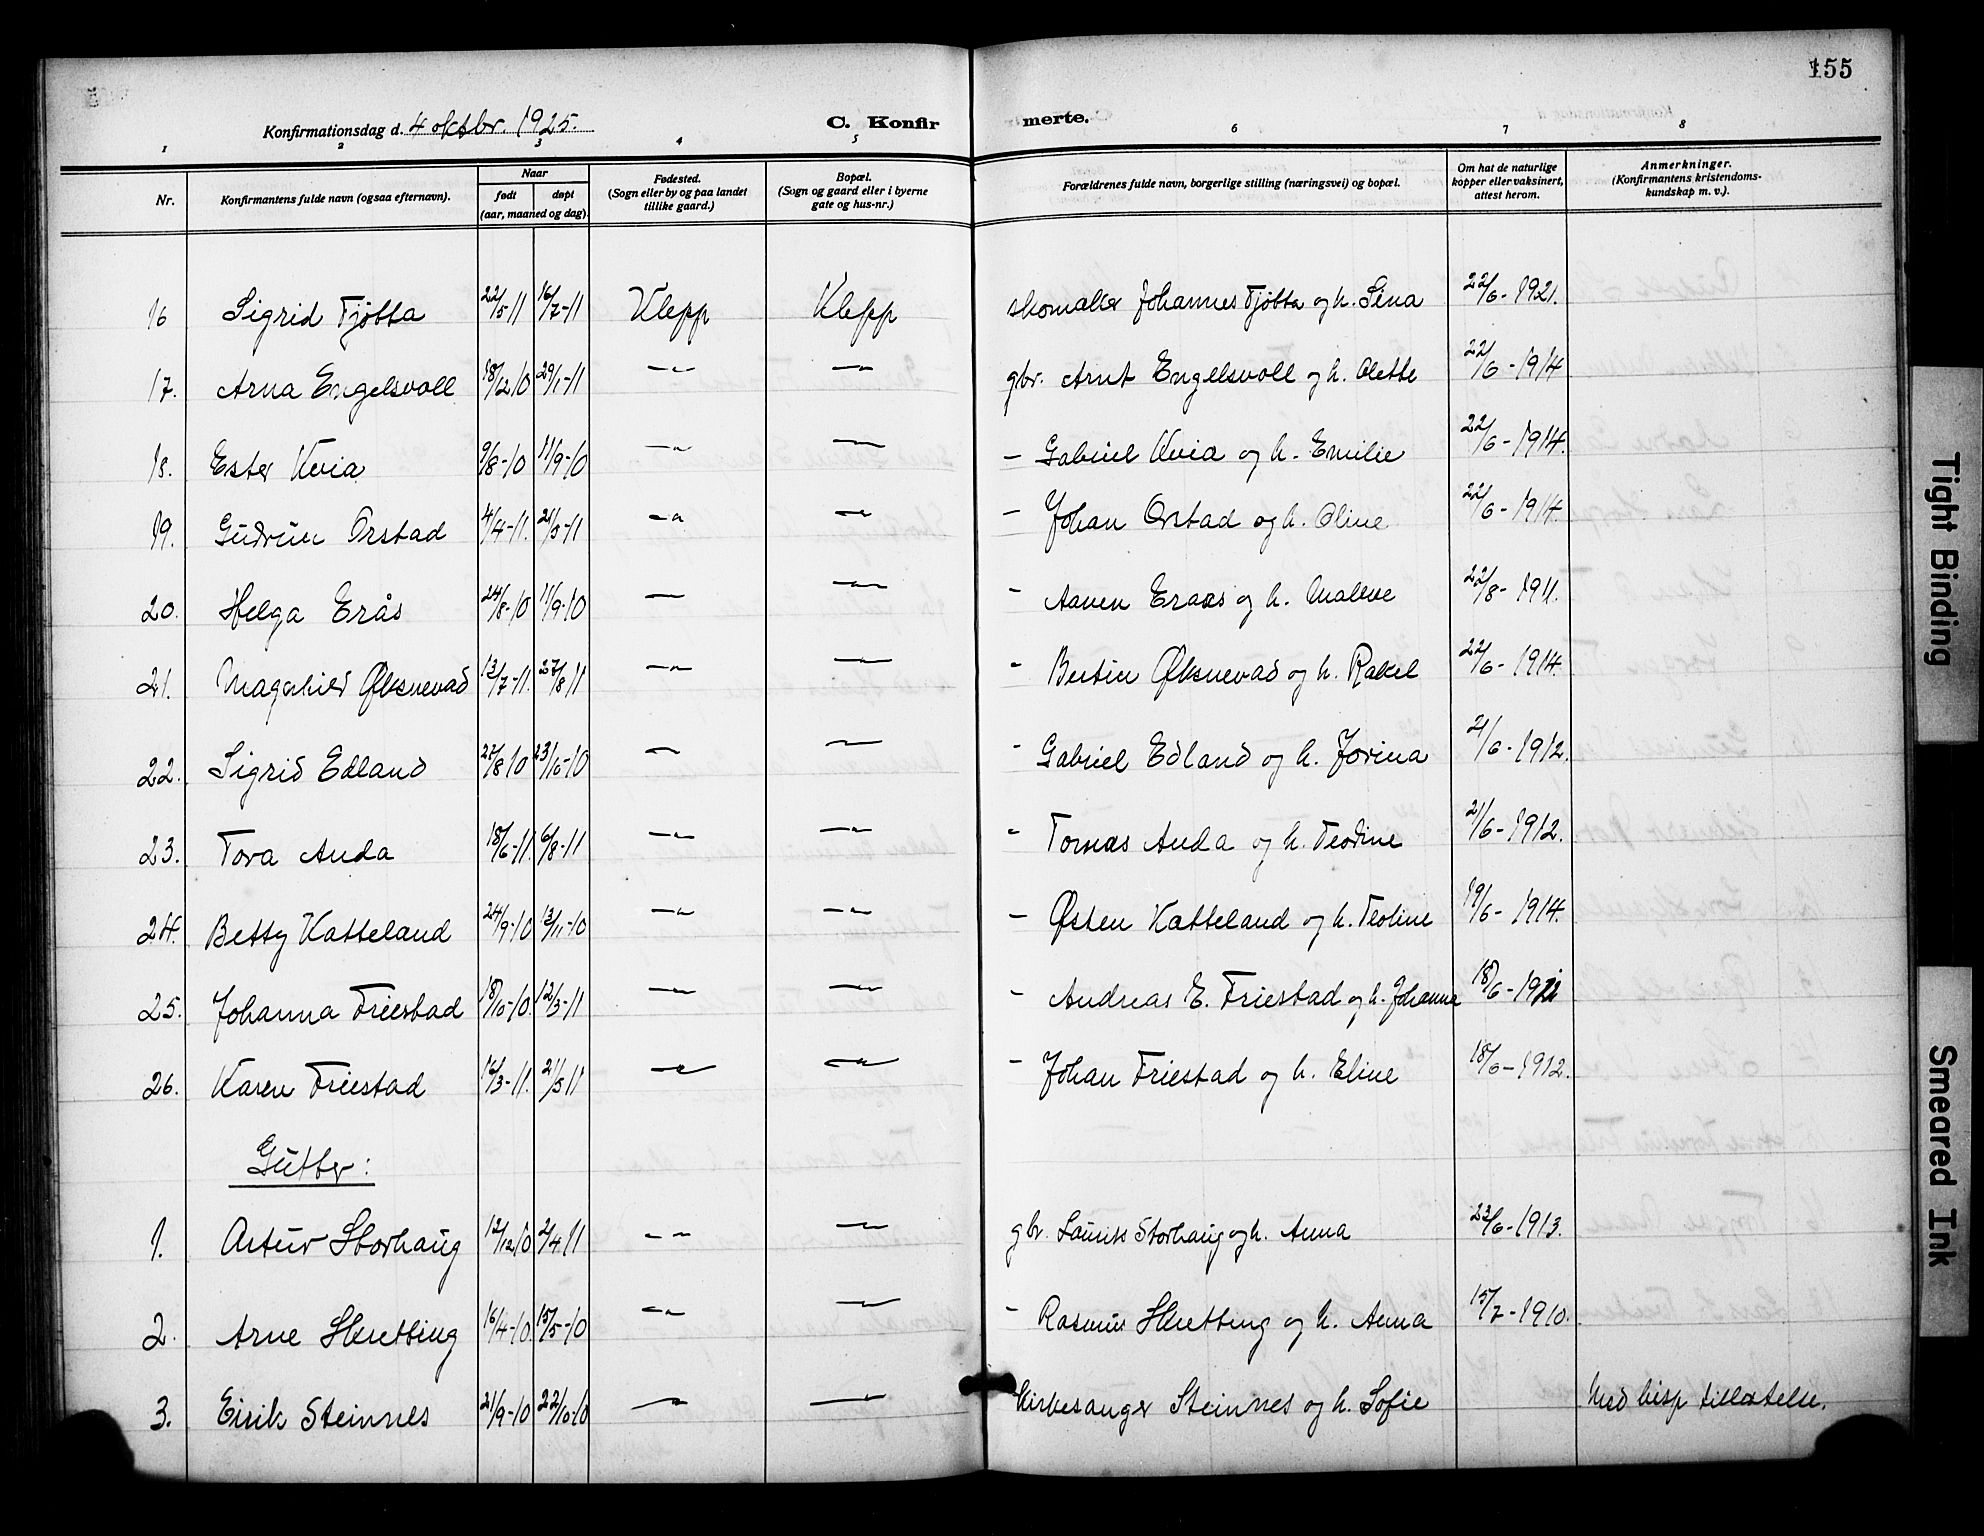 155
Konfirmationsdag d. 4 oktbr. 1925. C. Konfirmerte.
1 2 3 4 5 6 7 8
Nr. Konfirmantens fulde navn (ogsaa efternavn). Naar født døpt (aar, maaned og dag). Fødested. (Sogn eller by og paa landet tillike gaard.) Bopæl. (Sogn og gaard eller i byerne gate og hus-nr.) Forældrenes fulde navn, borgerlige stilling (næringsvei) og bopæl. Om hat de naturlige kopper eller vaksinert, attest herom. Anmerkninger. (Konfirmantens kristendomskundskap m. v.).
16 Sigrid Tjötta 22/5-11 16/7-11 Klepp Klepp skomaker Johannes Tjötta og h. Sina 22/6-1921.
17. Arna Engelsvoll 18/12 10 29/1-11 —"— —"— gbr. Arnt Engelsvoll og h. Olette 22/6-1914
18. Ester Kvia 9/8-10 11/9-10 —"— —"— — Gabriel Kvia og h. Emilie 22/6-1914.
19. Gudrun Orstad 4/4-11. 21/5-11 —"— —"— — Johan Orstad og h. Oline 22/6-1914.
20. Helga Erås 24/8-10 11/9-10 —"— —"— - Aanen Eraas og h. Malene 22/8-1911.
21. Magnhild Øksnevad 13/7-11. 27/8 11 —"— —"— - Bertin Øksnevad og h. Rakel 22/6-1914.
22. Sigrid Edland 27/8 10 23/10-10 —"— —"— - Gabriel Edland og h. Jorina 21/6-1912.
23. Tora Anda 18/6-11. 6/8-11 —"— —"— - Tomas Anda og h. Teodine 21/6-1912.
24. Betty Katteland 24/9-10 13/11-10 —"— —"— — Østen Katteland og h. Teoline 19/6-1914.
25. Johanna Friestad 18/10-10. 12/3-11 —"— —"— - Andreas E. Friestad og h. Johanna 18/6-
26. Karen Friestad 16/3-11. 21/5 11 —"— —"— - Johan Friestad og h. Eline 18/6-1912.
Gutter:
1. Artur Storhaug 12/12 10 2/4 11 —"— —"— gbr. Laurits Storhaug og h. Anna 23/6-1913.
2. Arne Skretting 16/4-10 15/5-10 —"— —"— - Rasmus Skretting og h. Anna 15/7-1910.
3. Eirik Steinnes 21/9-10 22/10-10 —"— —"— Kirkesanger Steinnes og h. Sofie Med bisp tillatelse.
Tight Binding
Smeared Ink